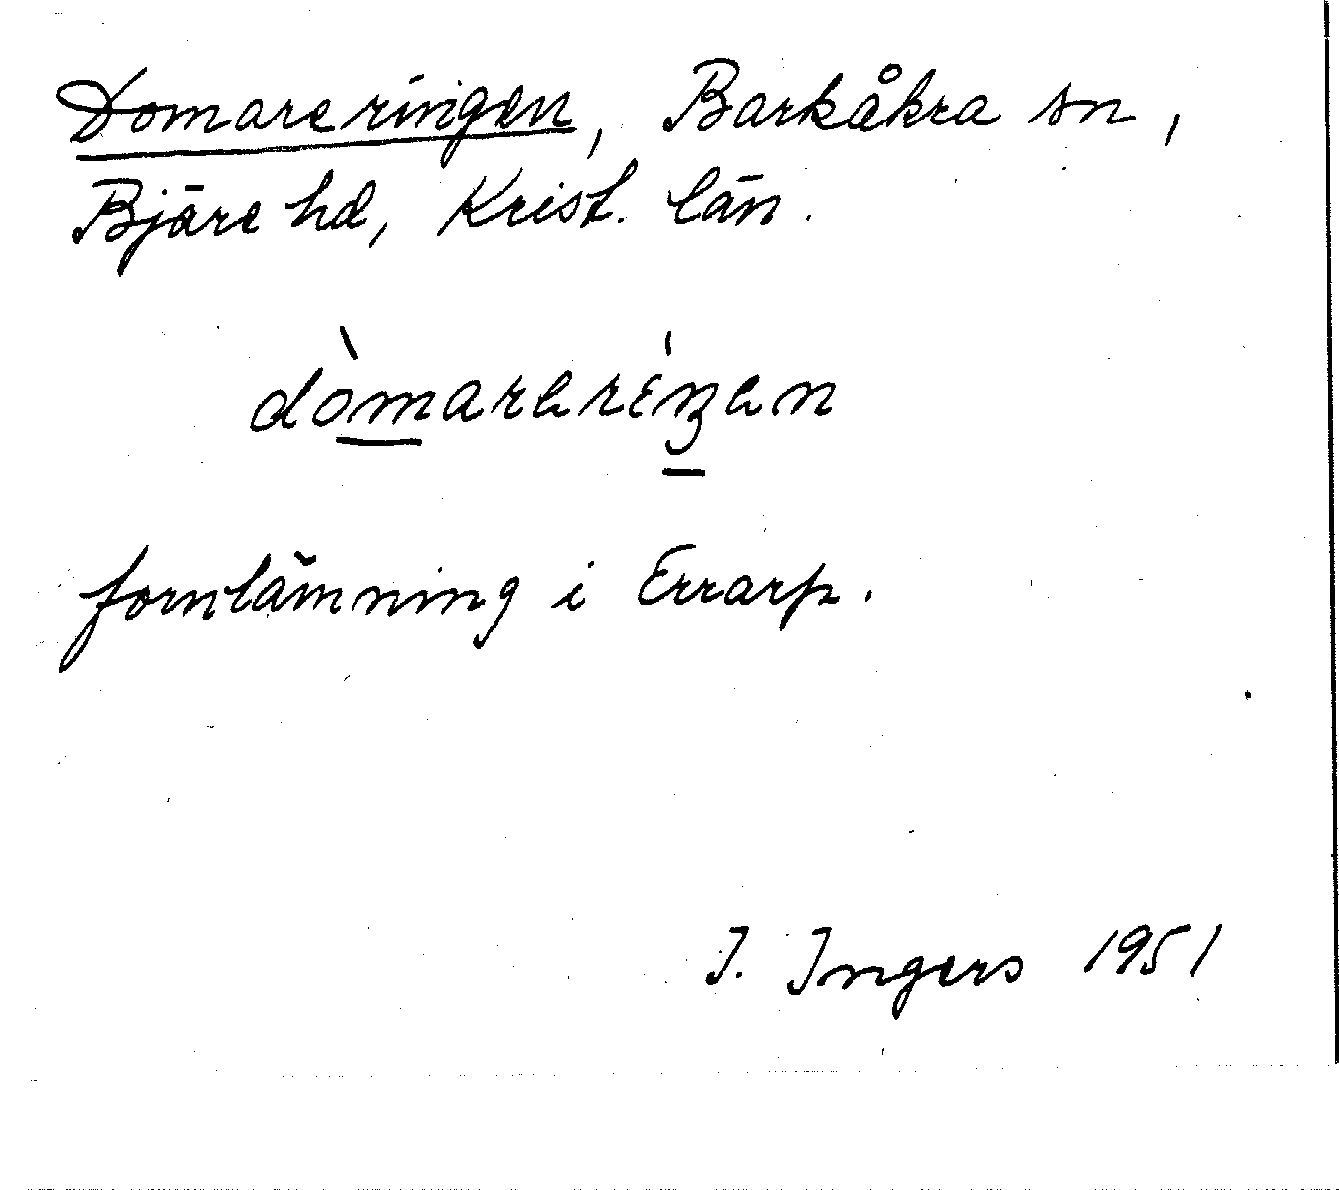 Domareringen, Barkåkra sn,
Bjäre hd, Krist. län.
dòmarərέŋən
fornlämning i Errarp.
I. Ingers 1951